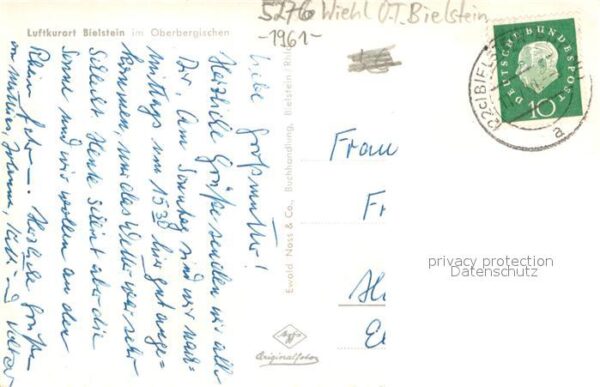 Luftkurort Bielstein im Oberbergischen
5276 Wiehl O.T. Bielstein
-1961-
Liebe Großmutter!
Herzliche Grüße senden wir alle
Dir. Am Sonntag sind wir nach-
mittags um 15 30 hier gut ange-
kommen, nur das Wetter war sehr
schlecht. Heute scheint aber die
Sonne und wir wollen an den
Rhein fahren. Herzliche Grüße
von und Volker
Ewald Noss & Co., Buchhandlung, Bielstein
Agfa
Originalfoto
DEUTSCHE BUNDESPOST
10
(22c) BIEL
a
Frau
Fr
privacy protection
Datenschutz